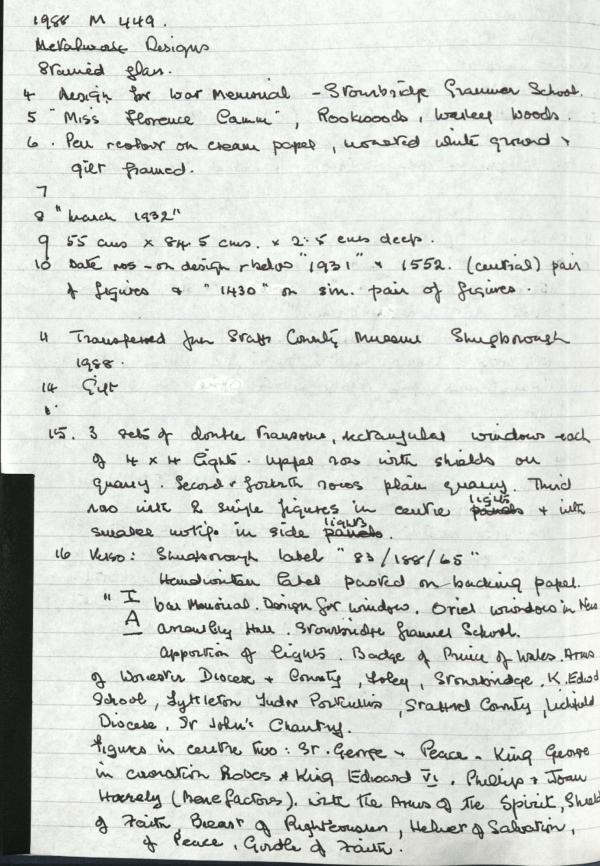 1988 M 449.
Metalwork Designs
Stained glass.
4 Design for War Memorial - Stourbridge Grammar School.
5 "Miss Florence Camm", Rookwoods, Warley Woods.
6. Pen & colour on cream paper, mounted white ground &
gilt framed.
7
8 "March 1932"
9 55 cms x 84.5 cms. x 2.5 cms deep.
10 Date nos - on design & below "1931" & 1552. (central) pair
of figures & "1430" on sim. pair of figures.
11 Transferred from Staffs County Museum Shugborough
1988.
14 Gift
15. 3 sets of double transome, rectangular windows each
of 4 x 4 lights. Upper row with shields on
quarry. Second & fourth rows plain quarry. Third
row with 2 single figures in centre panels lights & with
smaller motifs in side panels lights.
16 Verso: Shugborough label "83/188/65"
Handwritten label pasted on backing paper.
"I War Memorial. Design for window. Oriel window in New
A Assembly Hall. Stourbridge Grammar School.
Apportion of lights. Badge of Prince of Wales. Arms
of Worcester Diocese & County, Foley, Stourbridge, K. Edwd
School, Lyttleton Tudor Portcullis, Stafford County, Lichfield
Diocese, St John's Chantry.
Figures in centre two: St. George & Peace - King George
in coronation Robes & King Edward VI. Phillip & Joan
Haresly (Benefactors). with the Arms of the Spirit, Shield
of Faith, Breast of Righteousness, Helmet of Salvation,
of Peace, Girdle of Faith.